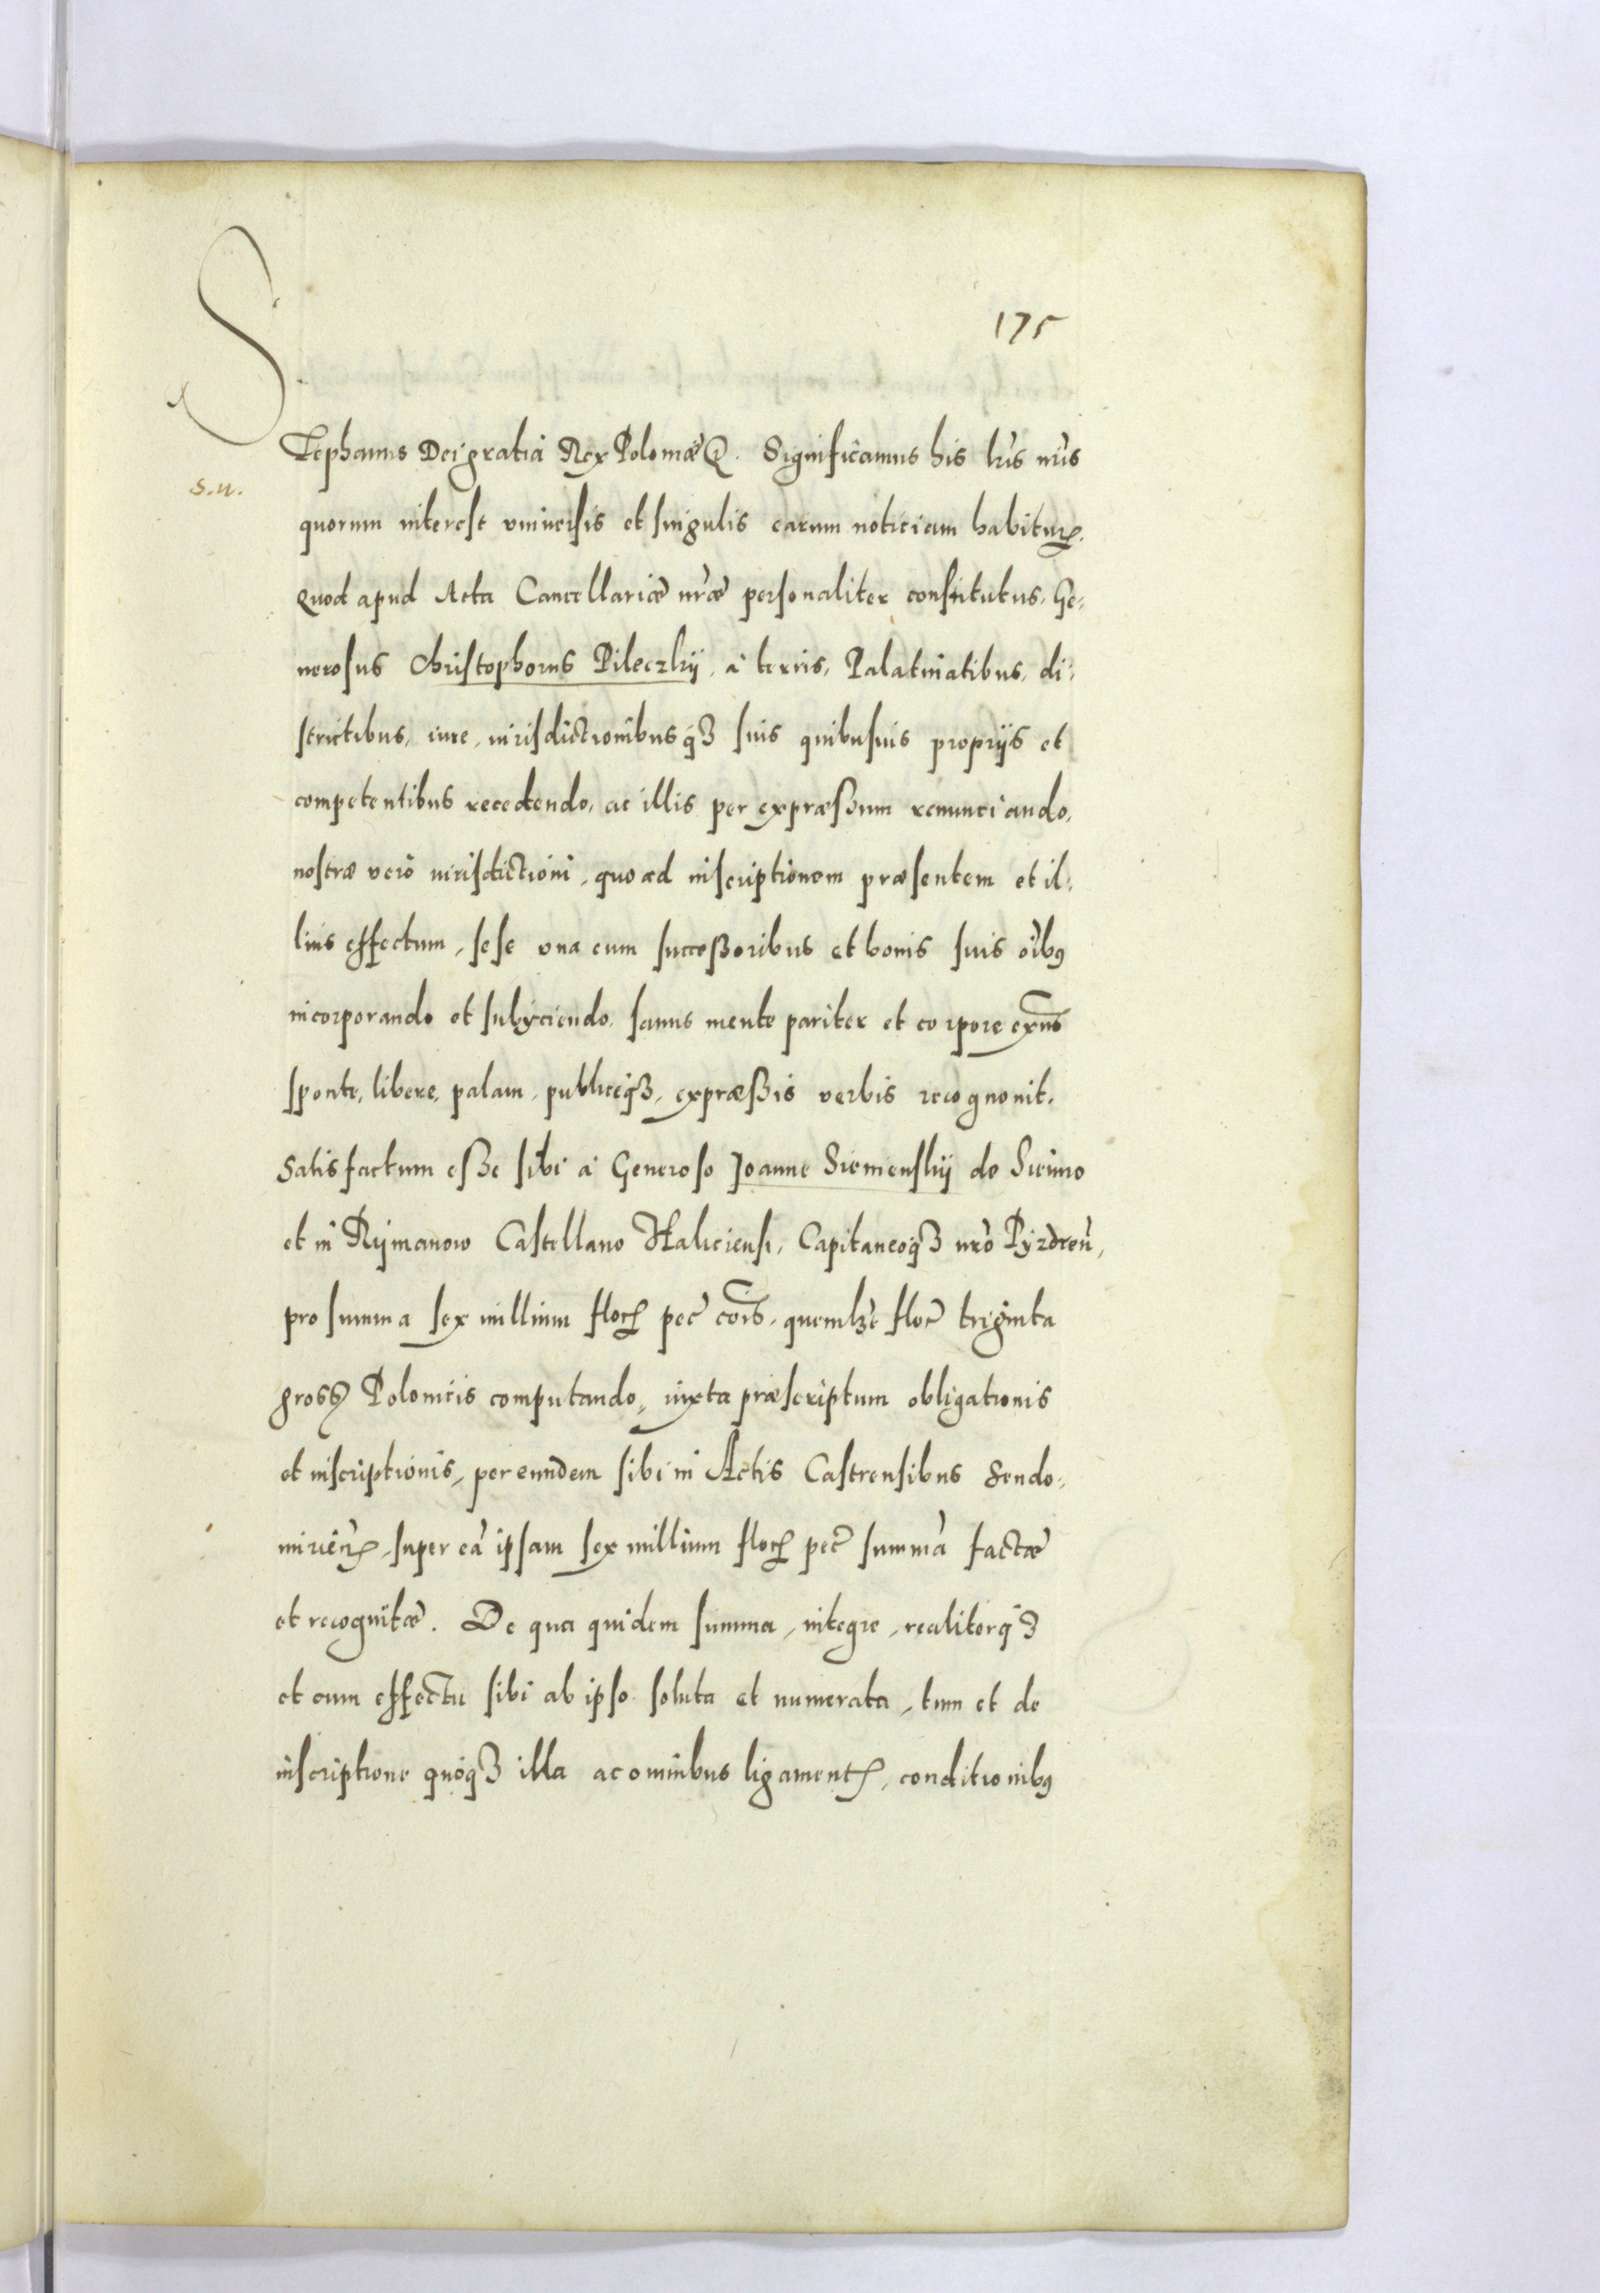 175
Stephanus Dei gratia Rex Poloniæ &. Significamus his lris nris
S. u.
quorum interest vniversis et singulis earum noticiam habitur.
Quod apud Acta Cancellariæ nræ personaliter constitutus, Ge-
nerosus Christophorus Pileczkij, à terris, Palatinatibus, di-
strictibus, iure, iurisdictionibusq3 suis quibusuis proprijs et
competentibus recedendo, ac illis per expræssum renunciando,
nostræ verò iurisdictioni, quo ad inscriptionem præsentem et il-
lius effectum, sese vna cum successoribus et bonis suis oibus
incorporando et subijciendo, sanus mente pariter et corpore exns
sponte, libere, palam, publiceq3, expræssis verbis recognouit.
Satisfactum esse sibi à Generoso Joanne Siemienskij de Sieimo
et in Rijmanow Castellano Haliciensi, Capitaneoq3 nro Pyzdren,
pro summa sex millium flor pec cois, quemlzt flor triginta
gross Polonicis computando, iuxta præscriptum obligationis
et inscriptionis, per eundem sibi in Actis Castrensibus Sendo-
mirien, super eà ipsam sex millium flor pec summà factæ
et recognitæ. De qua quidem summa, integre, realiterq3
et cum effectu sibi ab ipso soluta et numerata, tum et de
inscriptione quoq3 illa ac omnibus ligament, conditionibus